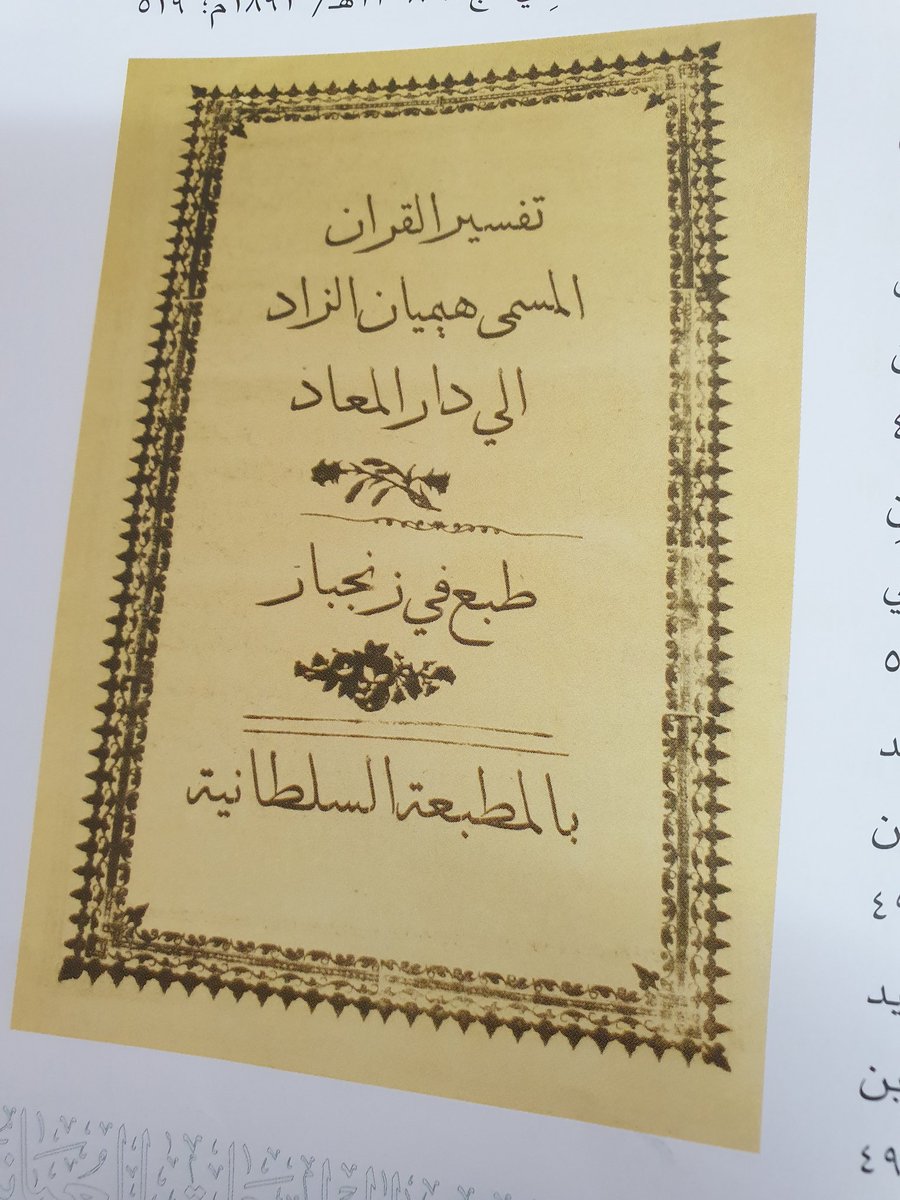 ١٨٩١م؛ ٥١٩
تفسير القران
المسمى هيميان الزاد
الي دار المعاد
طبع في زنجبار
بالمطبعة السلطانية